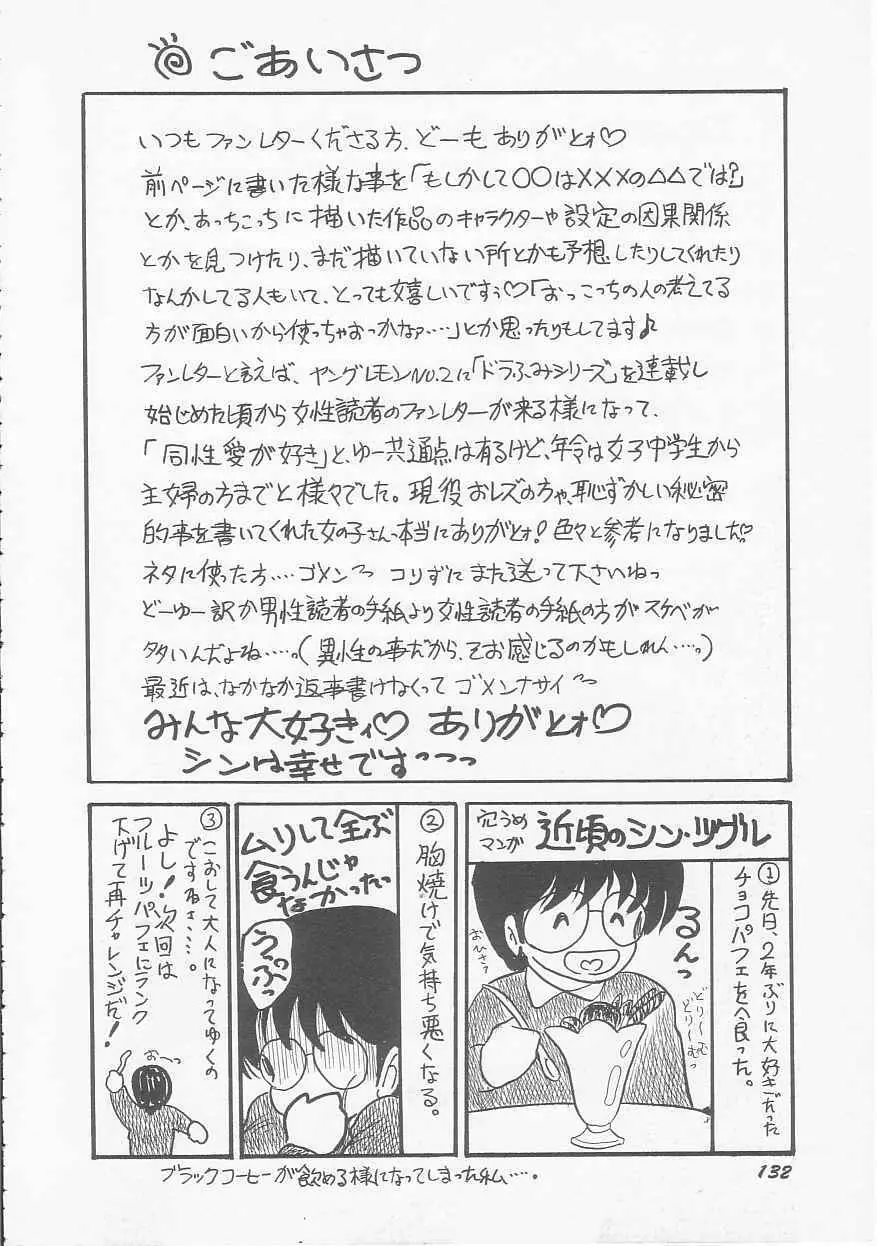 ごあいさつ
いつもファンレターくださる方、どーもありがとォ♡
前ページに書いた様な事を「もしかして〇〇は×××の△△では?」
とか、あっちこっちに描いた作品のキャラクターや設定の因果関係
とかを見つけたり、まだ描いていない所とかも予想したりしてくれたり
なんかしてる人もいて、とっても嬉しいですぅ♡「おっこっちの人の考えてる
方が面白いから使っちゃおっかなァ……」とか思ったりもしてます♪
ファンレターと言えば、ヤングレモンNO.2に「ドラふみシリーズ」を連載し
始じめた頃から女性読者のファンレターが来る様になって、
「同性愛が好き」と、ゆー共通点は有るけど、年令は女子中学生から
主婦の方までと様々でした。現役おレズの方や、恥ずかしい秘密
的事を書いてくれた女の子さんっ本当にありがとォ!色々と参考になりました♡
ネタに使った方‥‥ゴメン〜っ コりずにまた送って下さいねっ
どーゆー訳か男性読者の手紙より女性読者の手紙の方がスケベが
多いんだよね……っ(異性の事だから、そお感じるのかもしれん……っ)
最近は、なかなか返事書けなくって ゴメンナサイ〜っ
みんな大好きィ♡ ありがとォ♡
シンは幸せですっっっ
穴うめマンガ 近頃のシン・ツヴル
①先日、2年ぶりに大好きだった
チョコパフェを食った。
るんっ
おひさァ
どり〜む
どり〜むっ
②胸焼けで気持ち悪くなる。
ムリして全ぶ
食うんじゃ
なかったっ
うっぷっ
③こおして大人になってゆくの
ですねェ……。
よし!次回は
フルーツパフェにランク
下げて再チャレンジだ!
おーっ
ブラックコーヒーが飲める様になってしまった私……。
132